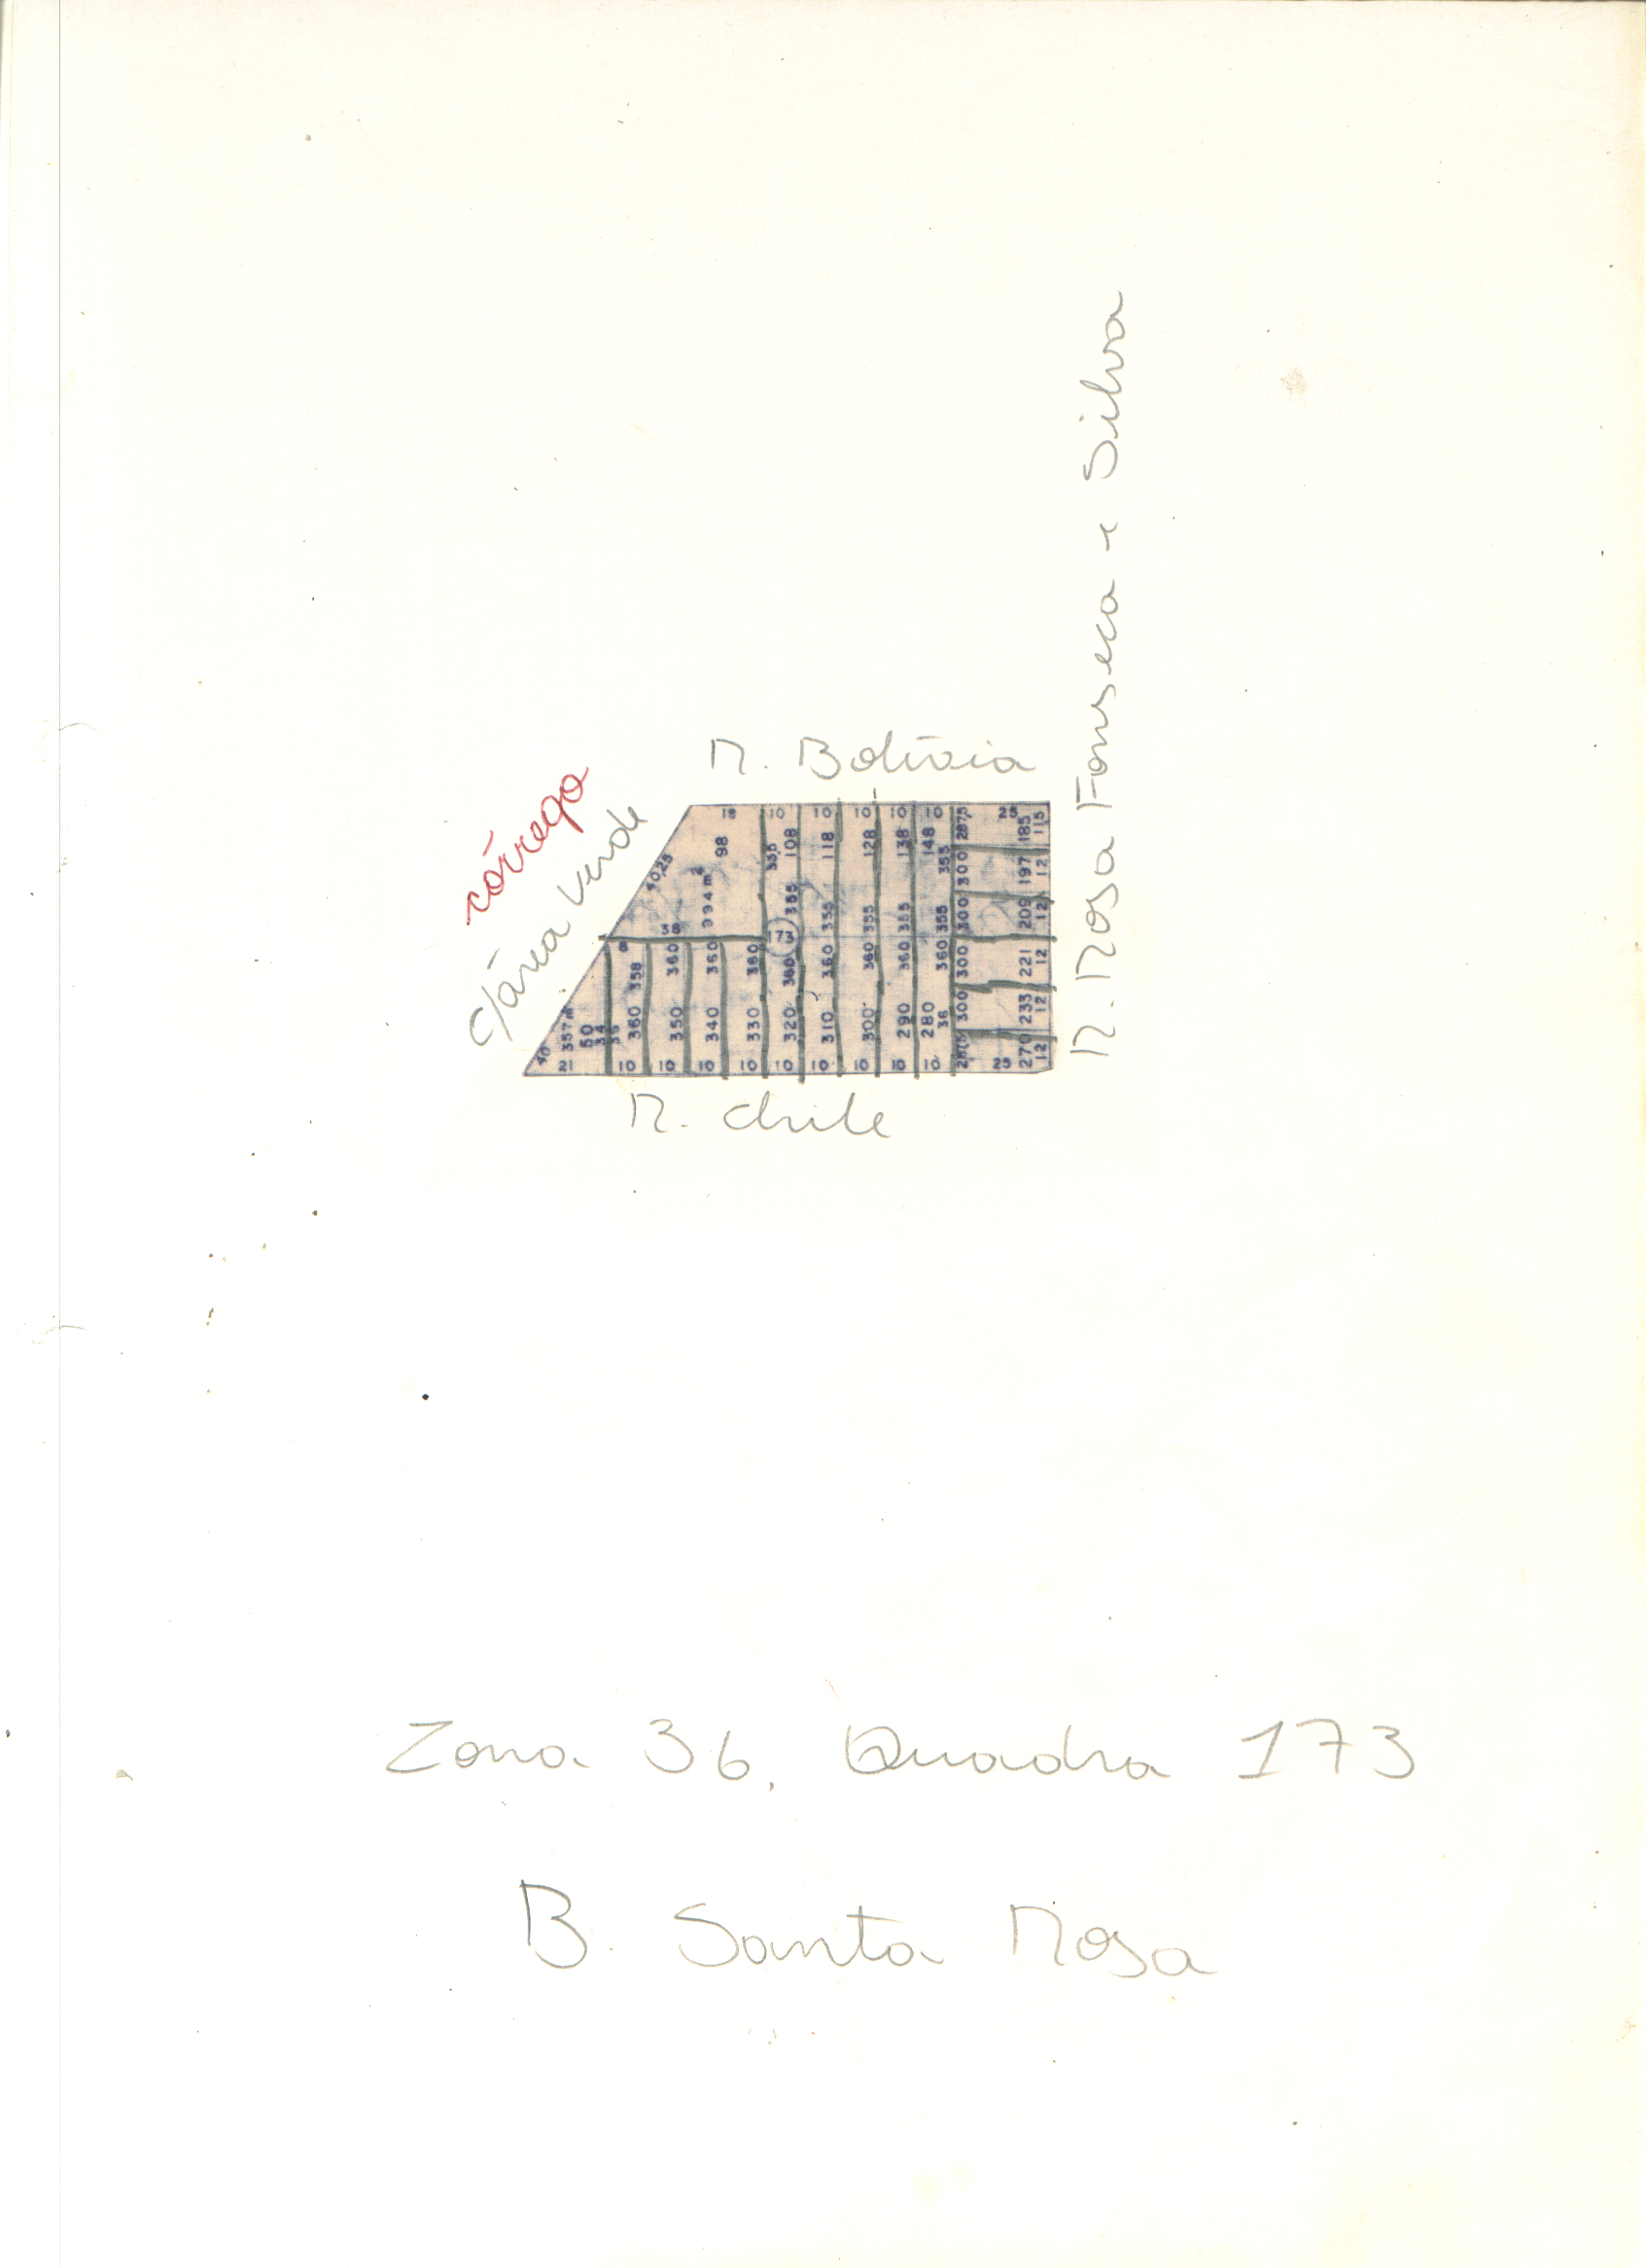 R. Rosa Fonseca e Silva
R. Bolívia
córrego
c/área verde
18 10 10 10 10 10 25
98 108 118 128 138 148 287,5 185 11,5
40,25 35,5 355 300 197 12
994 m² 355 355 355 355 355 300 209 12
38 173
8 358 360 360 360 360 360 360 360 360 300 221 12
357 m² 50 34 36 360 350 340 330 320 310 300 290 280 36 300 233 12
40 21 10 10 10 10 10 10 10 10 10 287,5 25 270 12
R. Chile
Zona 36, Quadra 173
B. Santa Rosa